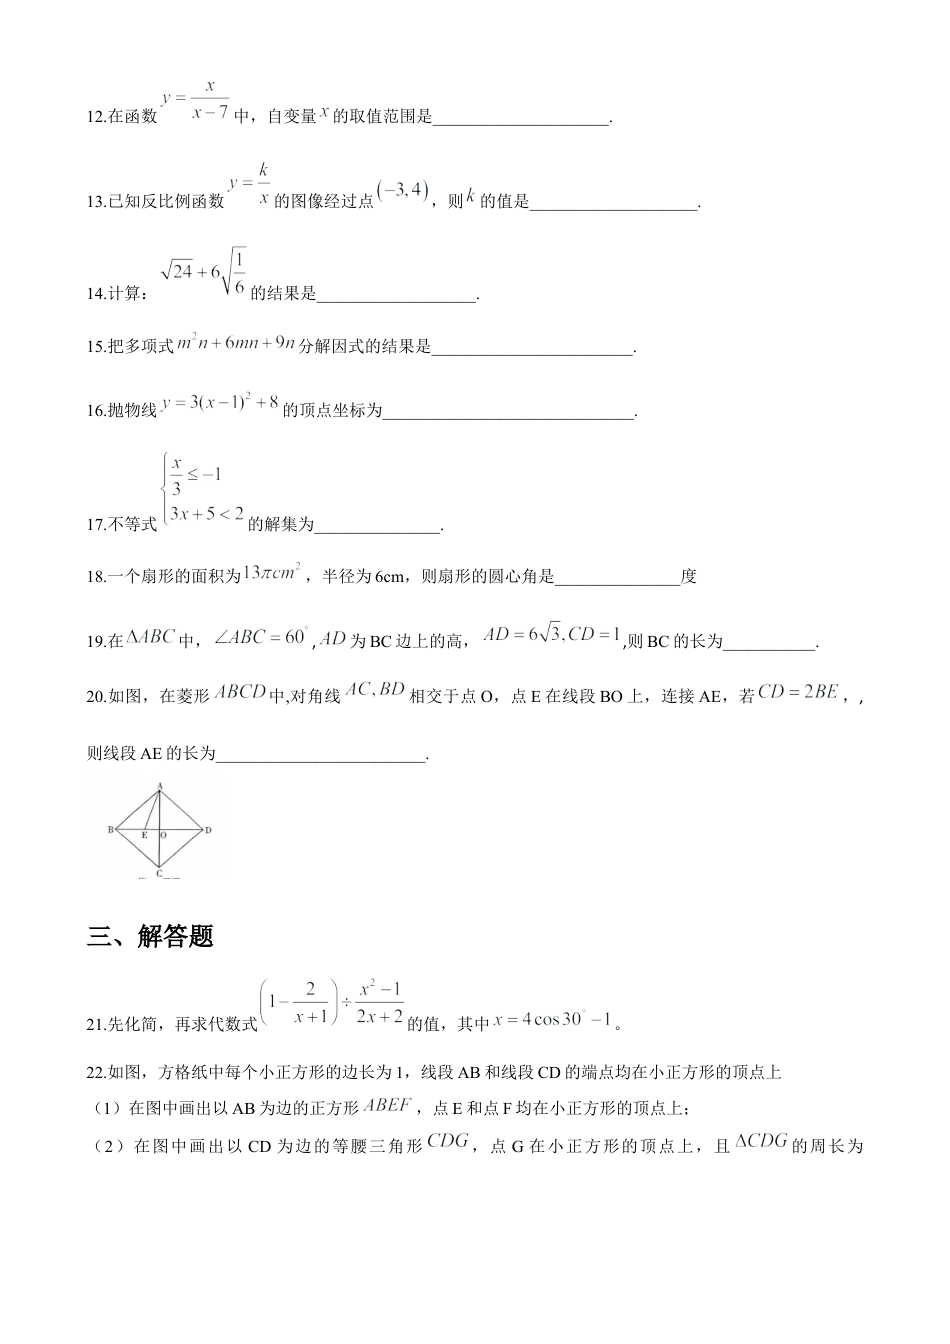 12.在函数 y = x/(x−7) 中，自变量 x 的取值范围是____________________.
13.已知反比例函数 y = k/x 的图像经过点 (−3,4)，则 k 的值是____________________.
14.计算： √24 + 6√(1/6) 的结果是___________________.
15.把多项式 m²n+6mn+9n 分解因式的结果是________________________.
16.抛物线 y = 3(x−1)²+8 的顶点坐标为______________________________.
17.不等式 { x/3 ≤ −1 3x+5<2 的解集为_______________.
18.一个扇形的面积为 13πcm²，半径为 6cm，则扇形的圆心角是_______________度
19.在 ΔABC 中， ∠ABC = 60°, AD 为 BC 边上的高， AD = 6√3, CD = 1,则 BC 的长为___________.
20.如图，在菱形 ABCD 中,对角线 AC, BD 相交于点 O，点 E 在线段 BO 上，连接 AE，若 CD = 2BE，,
则线段 AE 的长为_________________________.
A
B E O D
C
三、解答题
21.先化简，再求代数式 (1− 2/(x+1)) ÷ (x²−1)/(2x+2) 的值，其中 x = 4cos30°−1。
22.如图，方格纸中每个小正方形的边长为 1，线段 AB 和线段 CD 的端点均在小正方形的顶点上
（1）在图中画出以 AB 为边的正方形 ABEF，点 E 和点 F 均在小正方形的顶点上；
（2）在图中画出以 CD 为边的等腰三角形 CDG，点 G 在小正方形的顶点上，且 ΔCDG 的周长为